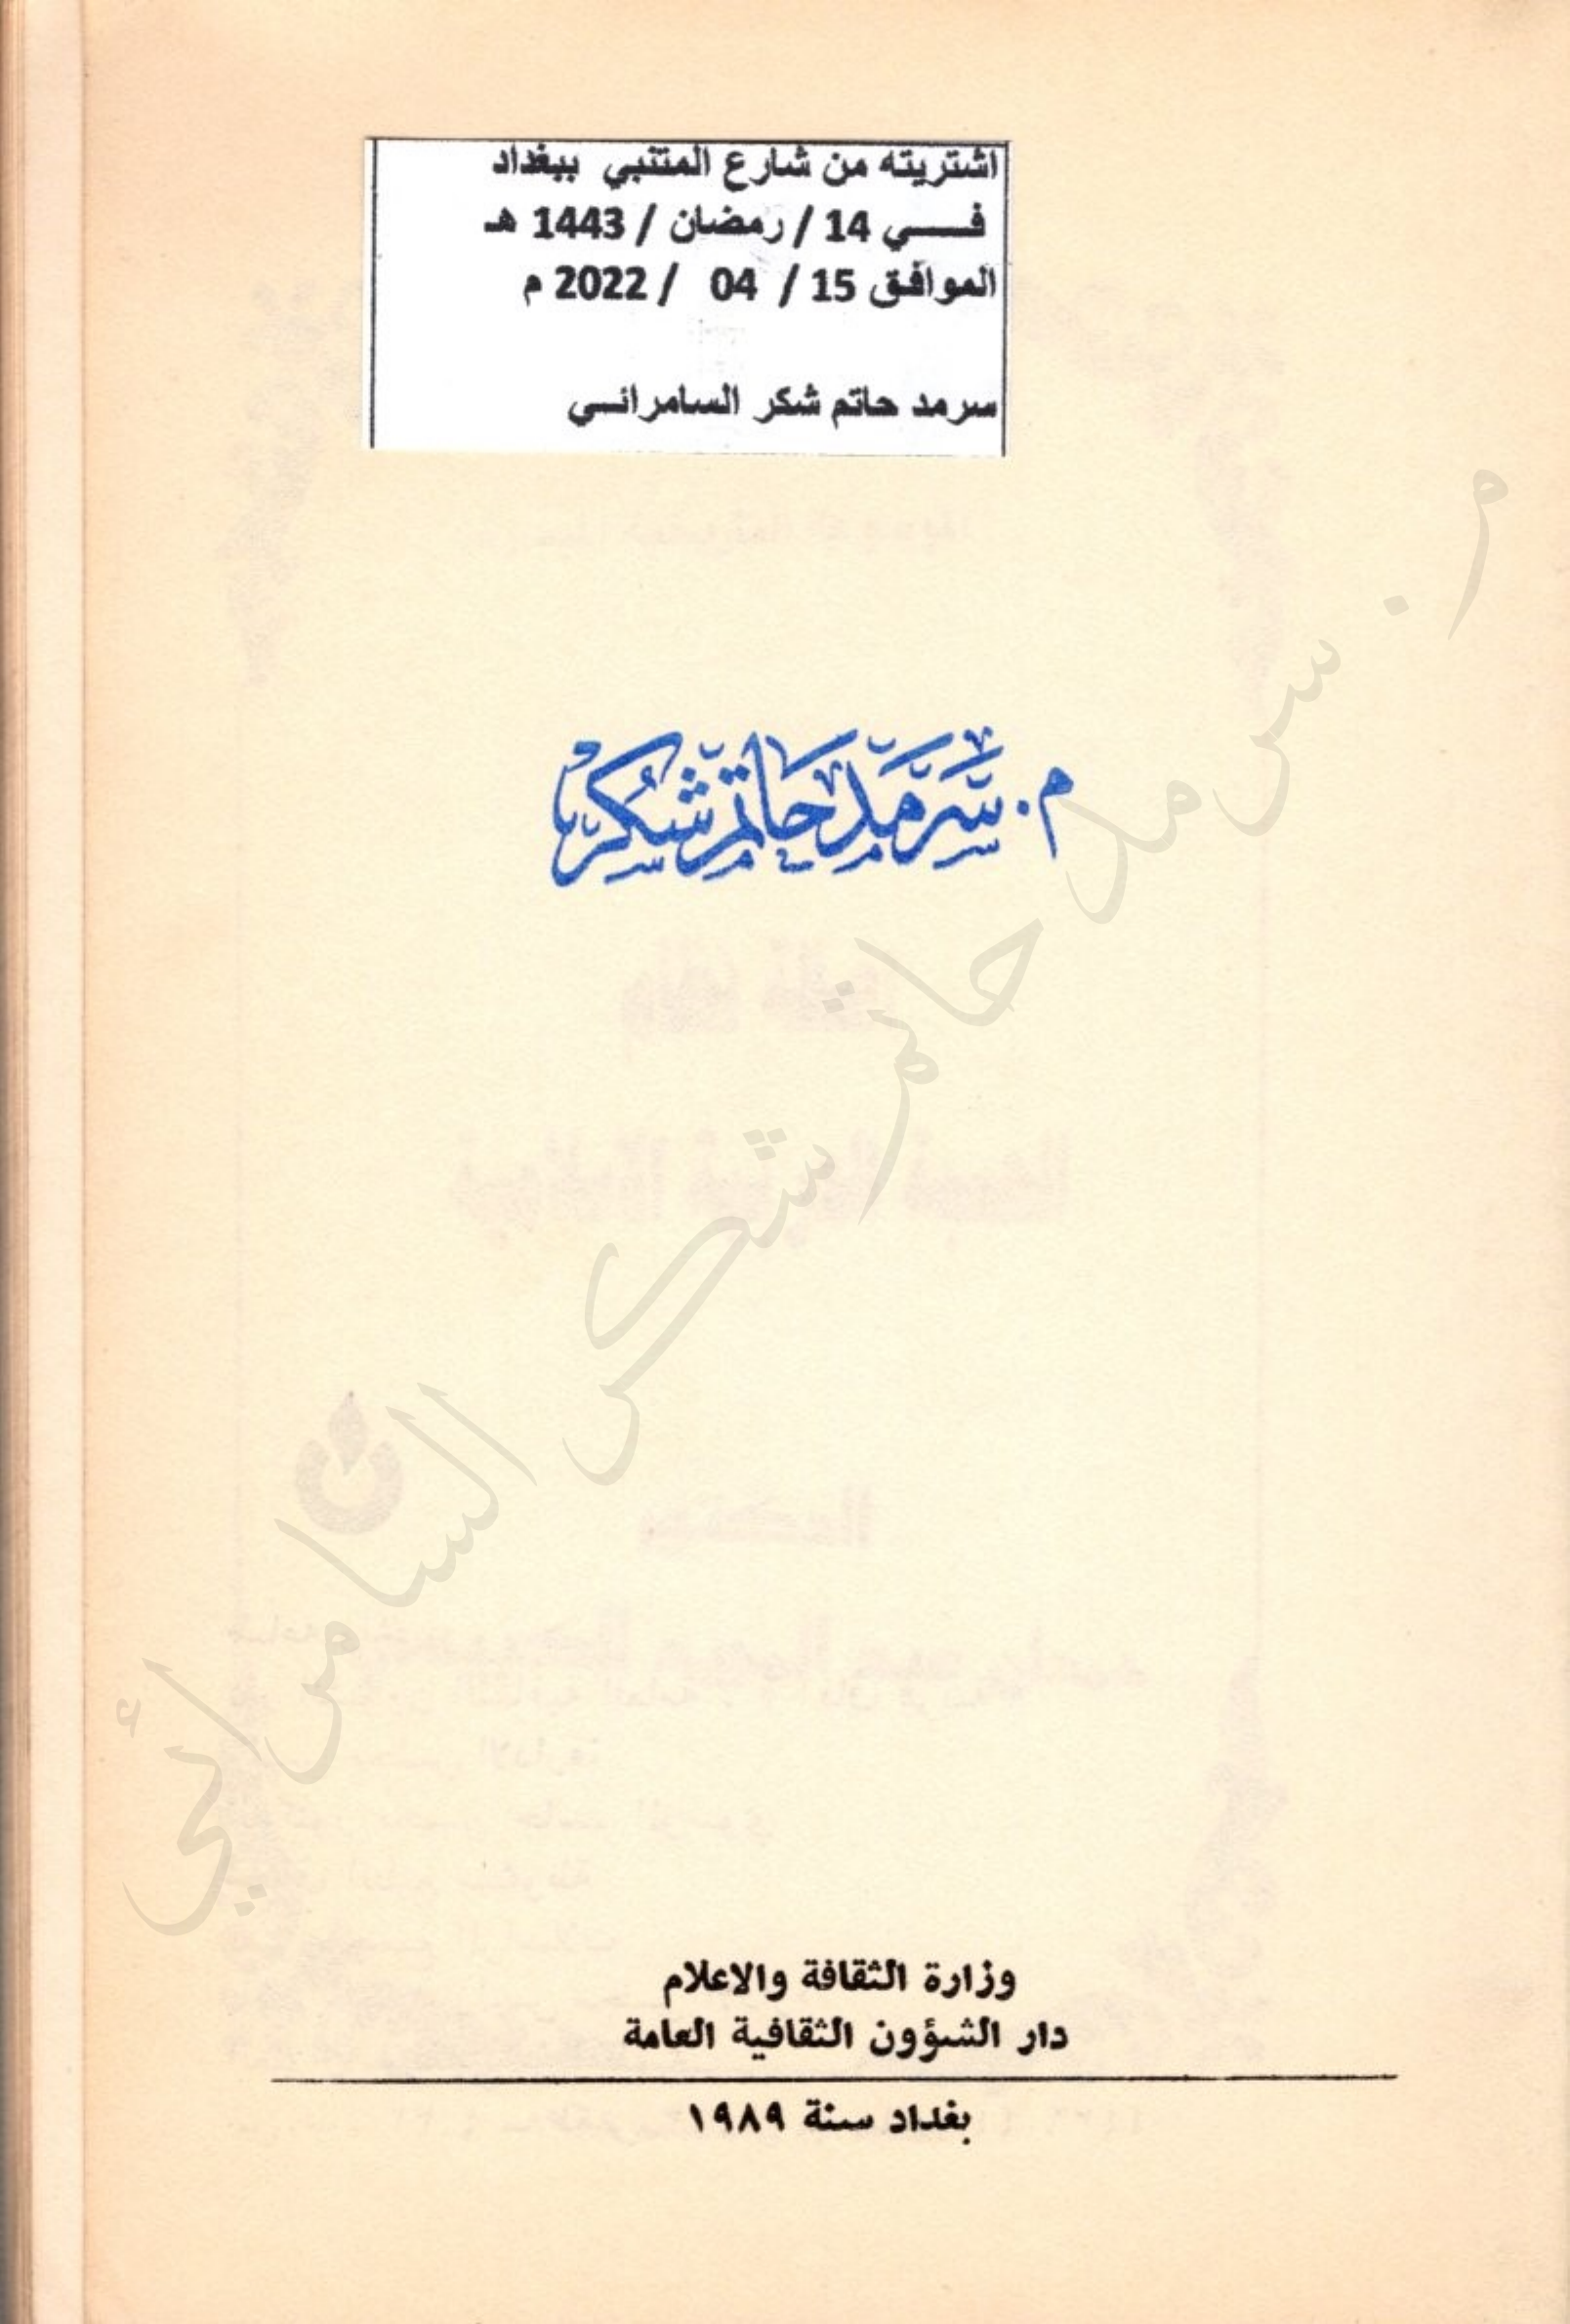 اشتريته من شارع المتنبي ببغداد
فـــــي 14 / رمضان / 1443 هـ
الموافق 15 / 04 / 2022 م
سرمد حاتم شكر السامرائـــي
م. سَرمَد حَاتم شُكر
م. سرمد حاتم شكر السامرائي
وزارة الثقافة والاعلام
دار الشؤون الثقافية العامة
بغداد سنة ١٩٨٩